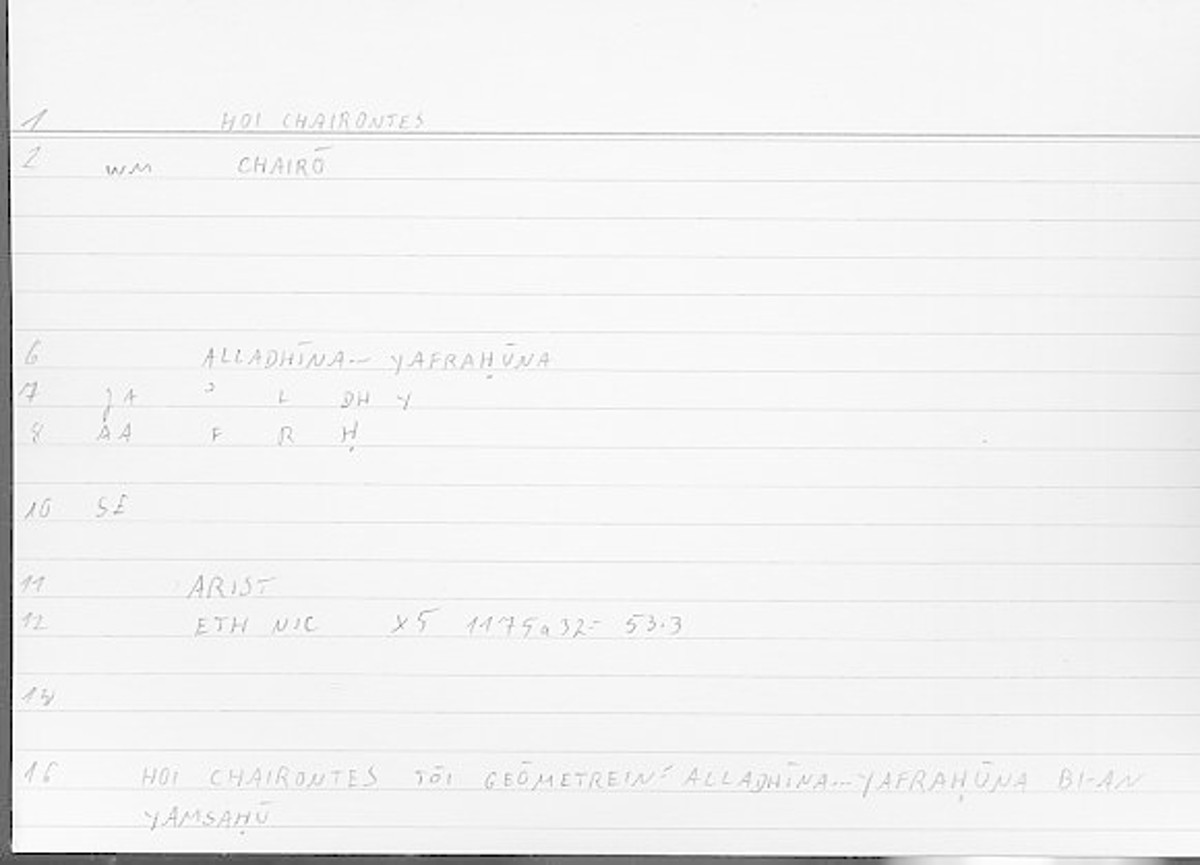 1 HOI CHAIRONTES
2 WM CHAIRŌ
6 ALLADHĪNA-- YAFRAḤŪNA
7 JA ʾ L DH Y
8 AA F R Ḥ
10 SE
11 ARIST
12 ETH NIC X5 1175a32= 53.3
16 HOI CHAIRONTES TŌI GEŌMETREIN= ALLADHĪNA--YAFRAḤŪNA BI-AN
YAMSAḤŪ